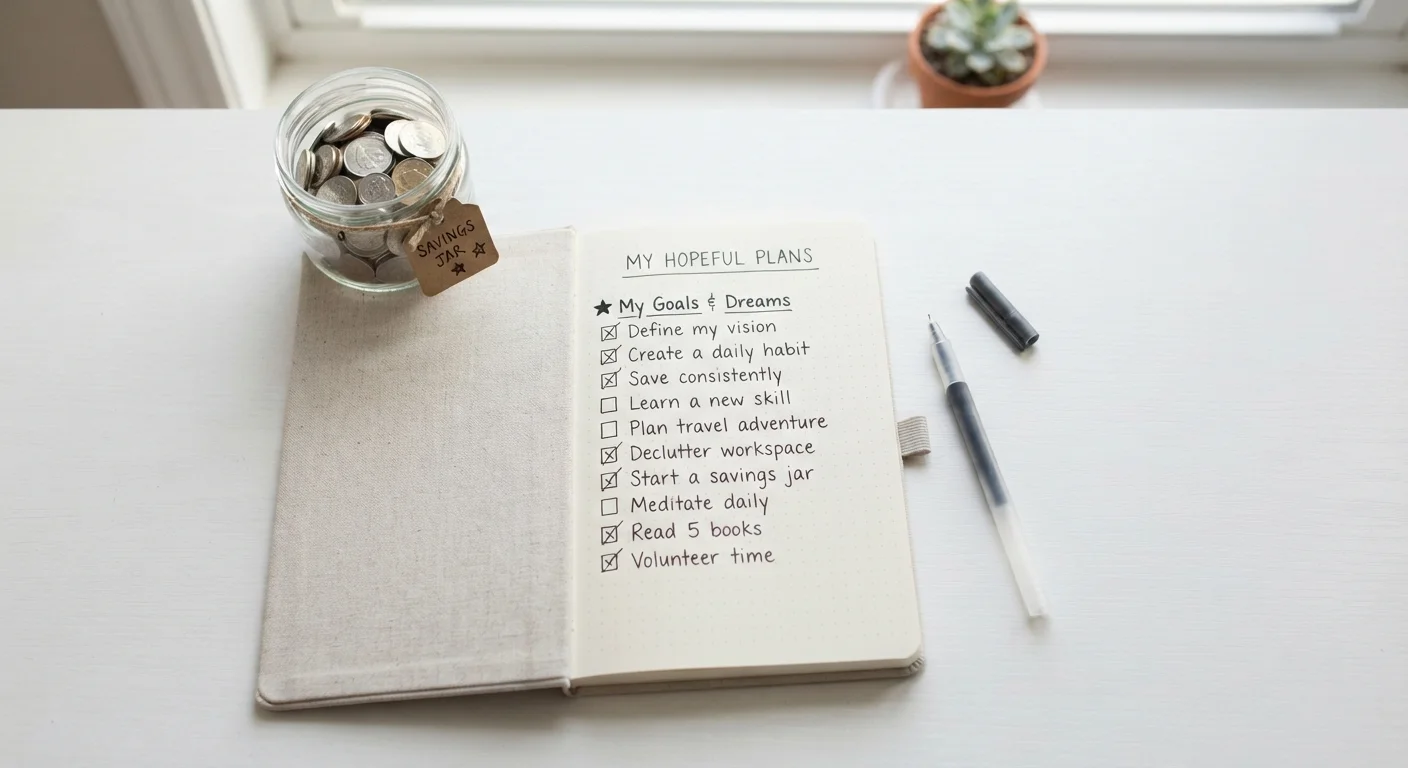 SAVINGS
JAR
MY HOPEFUL PLANS
★ My Goals & Dreams
☒ Define my vision
☒ Create a daily habit
☒ Save consistently
☐ Learn a new skill
☐ Plan travel adventure
☒ Declutter workspace
☑ Start a savings jar
☐ Meditate daily
☒ Read 5 books
☒ Volunteer time